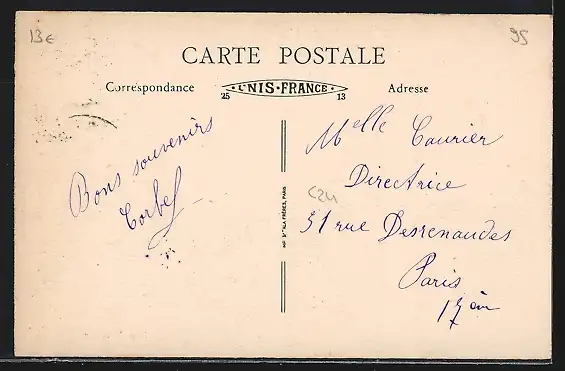 13€
95
CARTE POSTALE
Correspondance
L'NIS·FRANCE
25
13
Adresse
Bons souvenirs
Corbel
C24
Melle Courier
Directrice
51 rue Desrenaudes
Paris
17èm